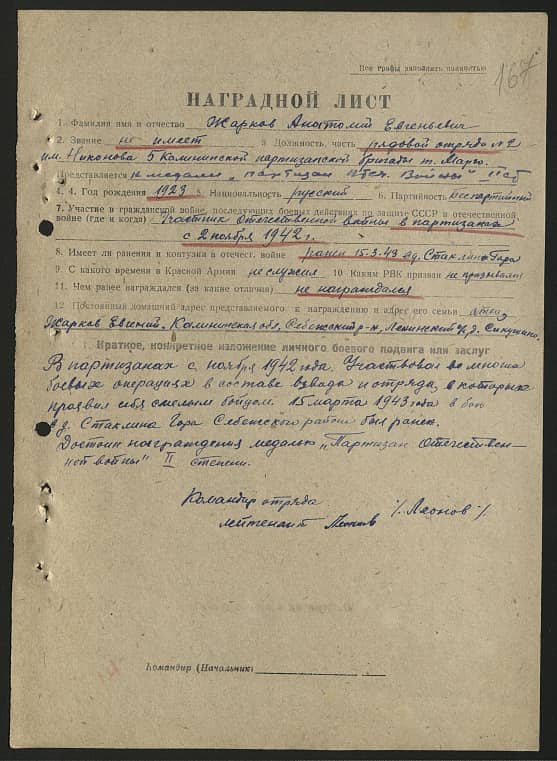 Все графы заполнять полностью
167
НАГРАДНОЙ ЛИСТ
1. Фамилия имя и отчество Жарков Анатолий Евгеньевич
2. Звание не имеет 3 Должность, часть рядовой отряда № 2
им. Никонова 5 Калининской партизанской бригады т. Марго.
Представляется к медали "Партизан Отеч. Войны" II ст
4. 4. Год рождения 1923 5. Национальность русский 6. Партийность беспартийный
7. Участие в гражданской войне, последующих боевых действиях по защите СССР в отечественной
войне (где и когда) Участник Отечественной войны в партизанах
с 2 ноября 1942 г.
8. Имеет ли ранения и контузия в отечест. войне ранен 15.3.43 д. Стаклина Гора
9. С какого времени в Красной Армии не служил 10 Каким РВК призван не призывался
11. Чем ранее награждался (за какие отличия) не награждался
12 Постоянный домашний адрес представляемого к награждению и адрес его семьи отец
Жарков Евгений. Калининская обл. Себежский р-н, Ленинский с/с д.
I. Краткое, конкретное изложение личного боевого подвига или заслуг
В партизанах с ноября 1942 года. Участвовал во многих
боевых операциях в составе взвода и отряда, в которых
проявил себя смелым бойцом. 15 марта 1943 года в бою
в д. Стаклина Гора Себежского района был ранен.
Достоин награждения медалью „Партизан Отечествен-
ной войны" II степени.
Командир отряда
лейтенант Леонов /. Леонов /.
Командир (Начальник)